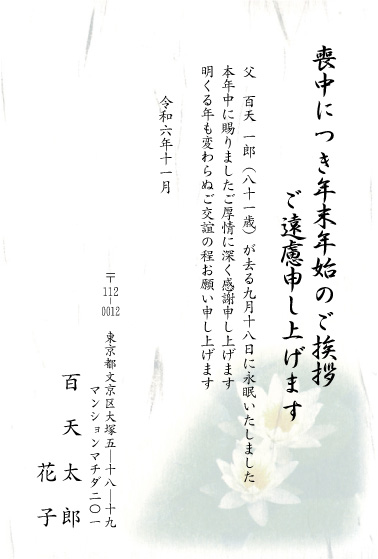 喪中につき年末年始のご挨拶
ご遠慮申し上げます
父　百天 一郎（八十一歳）が去る九月十八日に永眠いたしました
本年中に賜りましたご厚情に深く感謝申し上げます
明くる年も変わらぬご交誼の程お願い申し上げます
令和六年十一月
〒112-0012　東京都文京区大塚五―十八―十九
マンションマチダ二〇一
百天太郎
花子